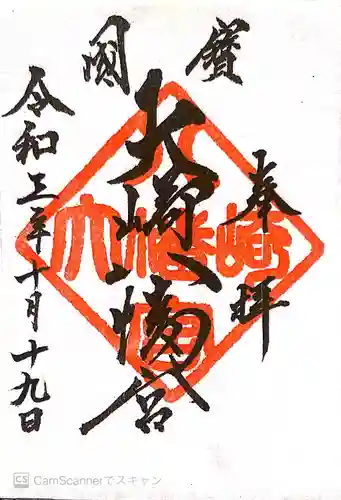 寶國
奉拝
大崎八幡宮
令和三年十月十九日
CamScannerでスキャン